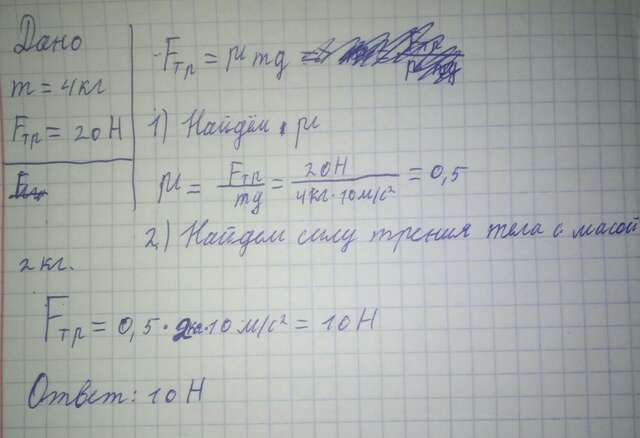 Дано
m = 4кг
Fтр = 20Н
Fтр = μmg
1) Найдём μ
μ = Fтр/mg = 20Н/4кг·10м/с² = 0,5
2) Найдем силу трения тела с масой
2кг.
Fтр = 0,5·2кг·10м/с² = 10Н
Ответ: 10Н